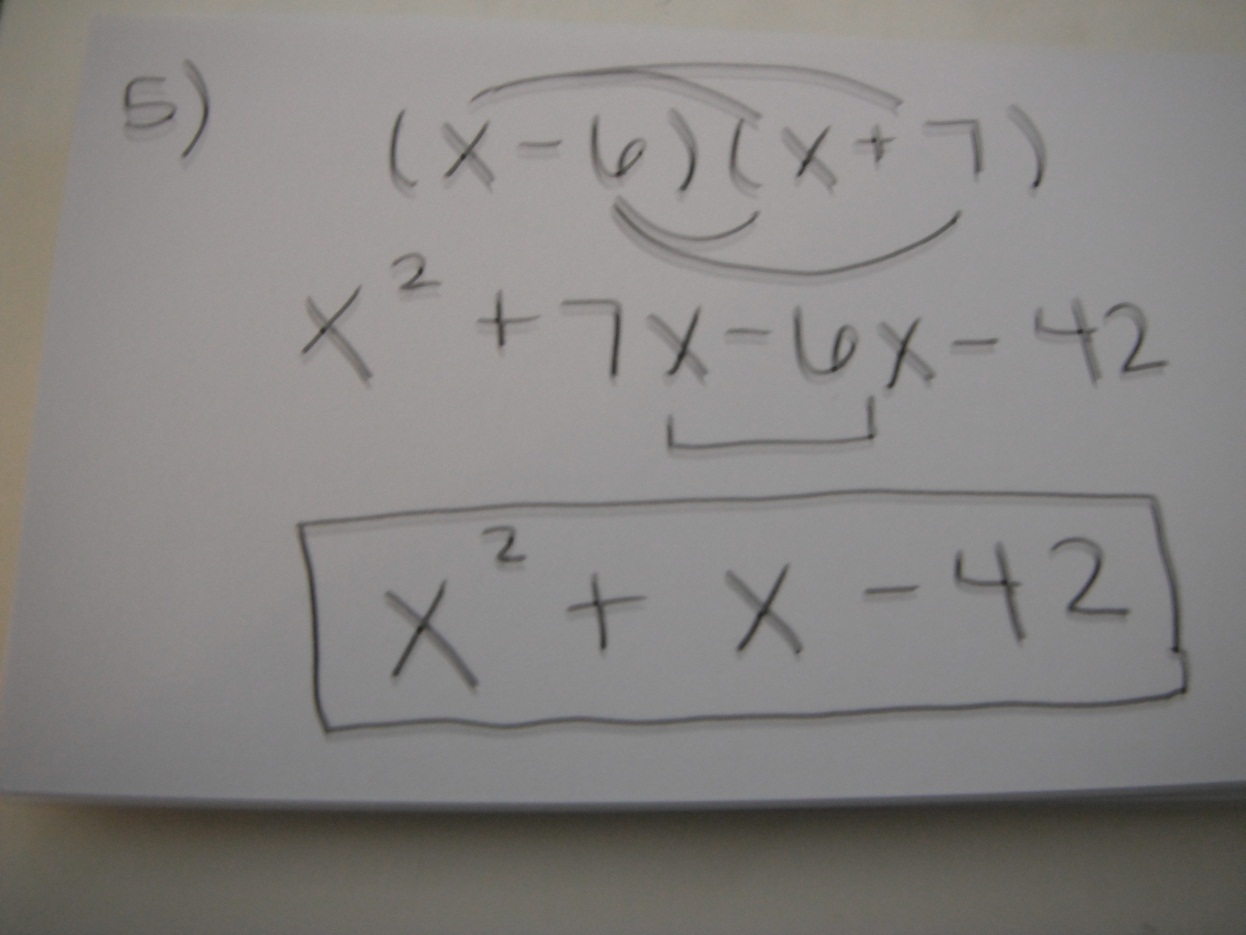 5)
(x-6)(x+7)
x² + 7x - 6x - 42
x² + x - 42